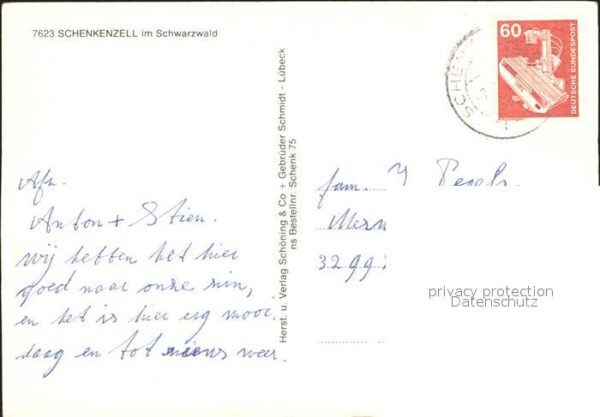 7623 SCHENKENZELL im Schwarzwald
60
DEUTSCHE BUNDESPOST
SCHE
Herst. u. Verlag Schöning & Co + Gebrüder Schmidt - Lübeck
ns Bestellnr. Schenk 75
Afz.
Anton + Stien.
wij hebben het hier
goed naar onze zin,
en het is hier erg mooi.
daag en tot weer.
fam. Y
3299
privacy protection
Datenschutz